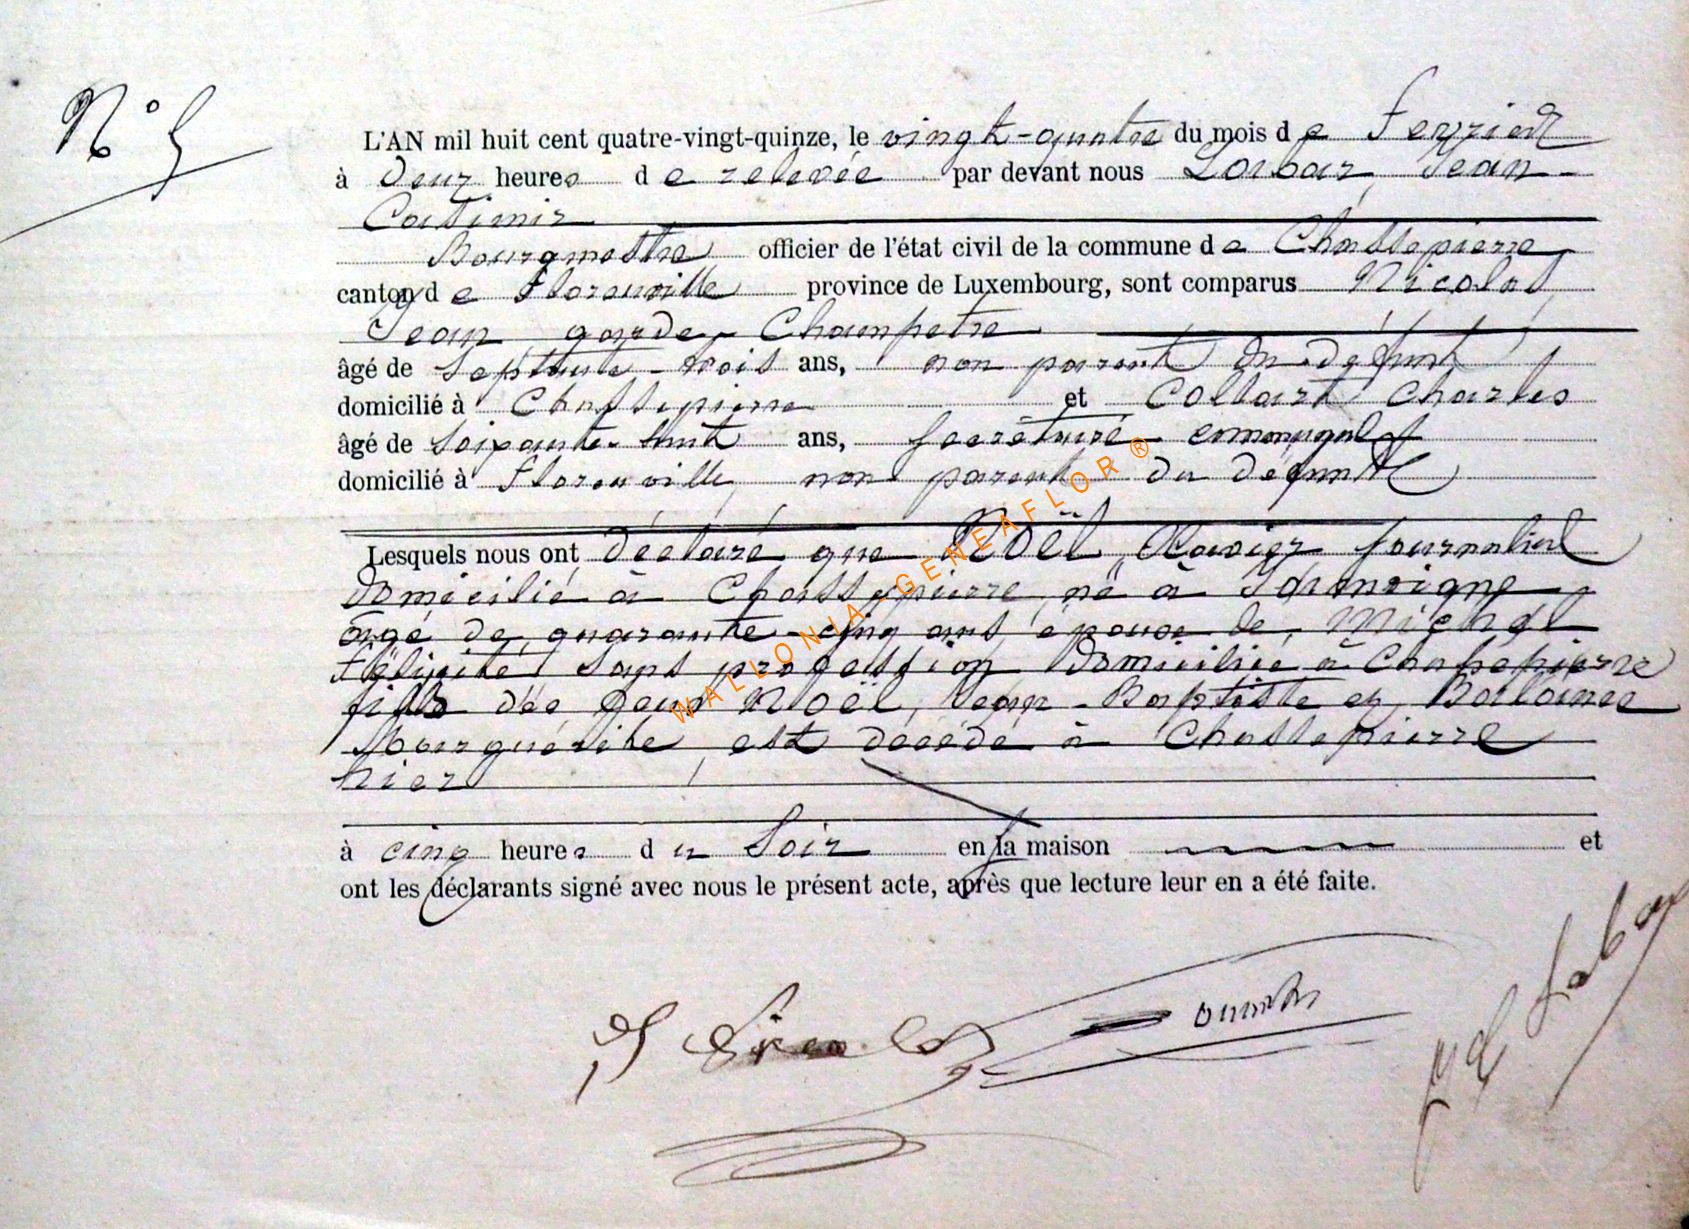 N° 5
L'AN mil huit cent quatre-vingt-quinze, le vingt-quatre du mois de Février
à deux heures de relevée par devant nous Lorbar, Jean-
Casimir
Bourgmestre officier de l'état civil de la commune de Chassepierre
canton de Florenville province de Luxembourg, sont comparus Nicolas,
Jean garde-Champetre
âgé de septante-trois ans, non parent du défunt,
domicilié à Chassepierre et Collart Charles
âgé de soixante-huit ans, secrétaire communal
domicilié à Florenville, non parent du défunt
Lesquels nous ont déclaré que NOËL, Xavier journalier
domicilié à Chassepierre, né à
âgé de quarante-cinq ans, époux de, Michel
Félicité sans profession domiciliée à Chassepierre
fils de Noël, Jean-Baptiste et
Marguérite, est décédé à Chassepierre
hier
à cinq heures du soir en sa maison et
ont les déclarants signé avec nous le présent acte, après que lecture leur en a été faite.
WALLONIA-GENEAFLOR ®